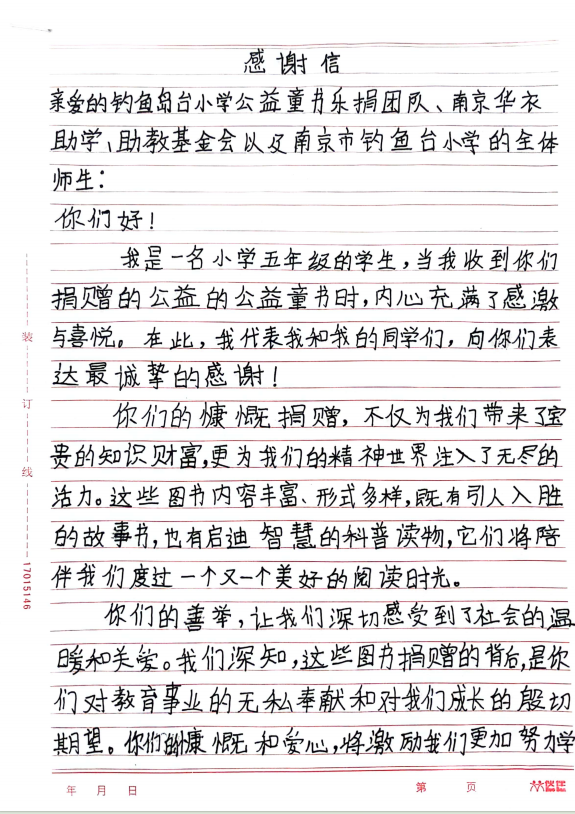 感谢信
亲爱的钓鱼岛台小学公益童书乐捐团队、南京华衣
助学、助教基金会以及南京市钓鱼台小学的全体
师生：
你们好！
我是一名小学五年级的学生，当我收到你们
捐赠的公益的公益童书时，内心充满了感激
与喜悦。在此，我代表我和我的同学们，向你们表
达最诚挚的感谢！
你们的慷慨捐赠，不仅为我们带来了宝
贵的知识财富，更为我们的精神世界注入了无尽的
活力。这些图书内容丰富、形式多样，既有引人入胜
的故事书，也有启迪智慧的科普读物，它们将陪
伴我们度过一个又一个美好的阅读时光。
你们的善举，让我们深切感受到了社会的温
暖和关爱。我们深知，这些图书捐赠的背后，是你
们对教育事业的无私奉献和对我们成长的殷切
期望。你们的慷慨和爱心，将激励我们更加努力学
装
订
线
17015146
年 月 日
第 页